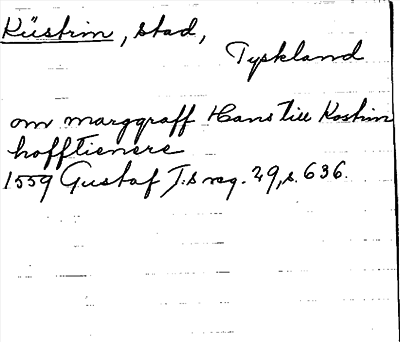 Küstrin, stad,
Tyskland
om marggraff Hans till Kostrin
hofftienere
1559 Gustaf I:s reg. 29, s. 636.